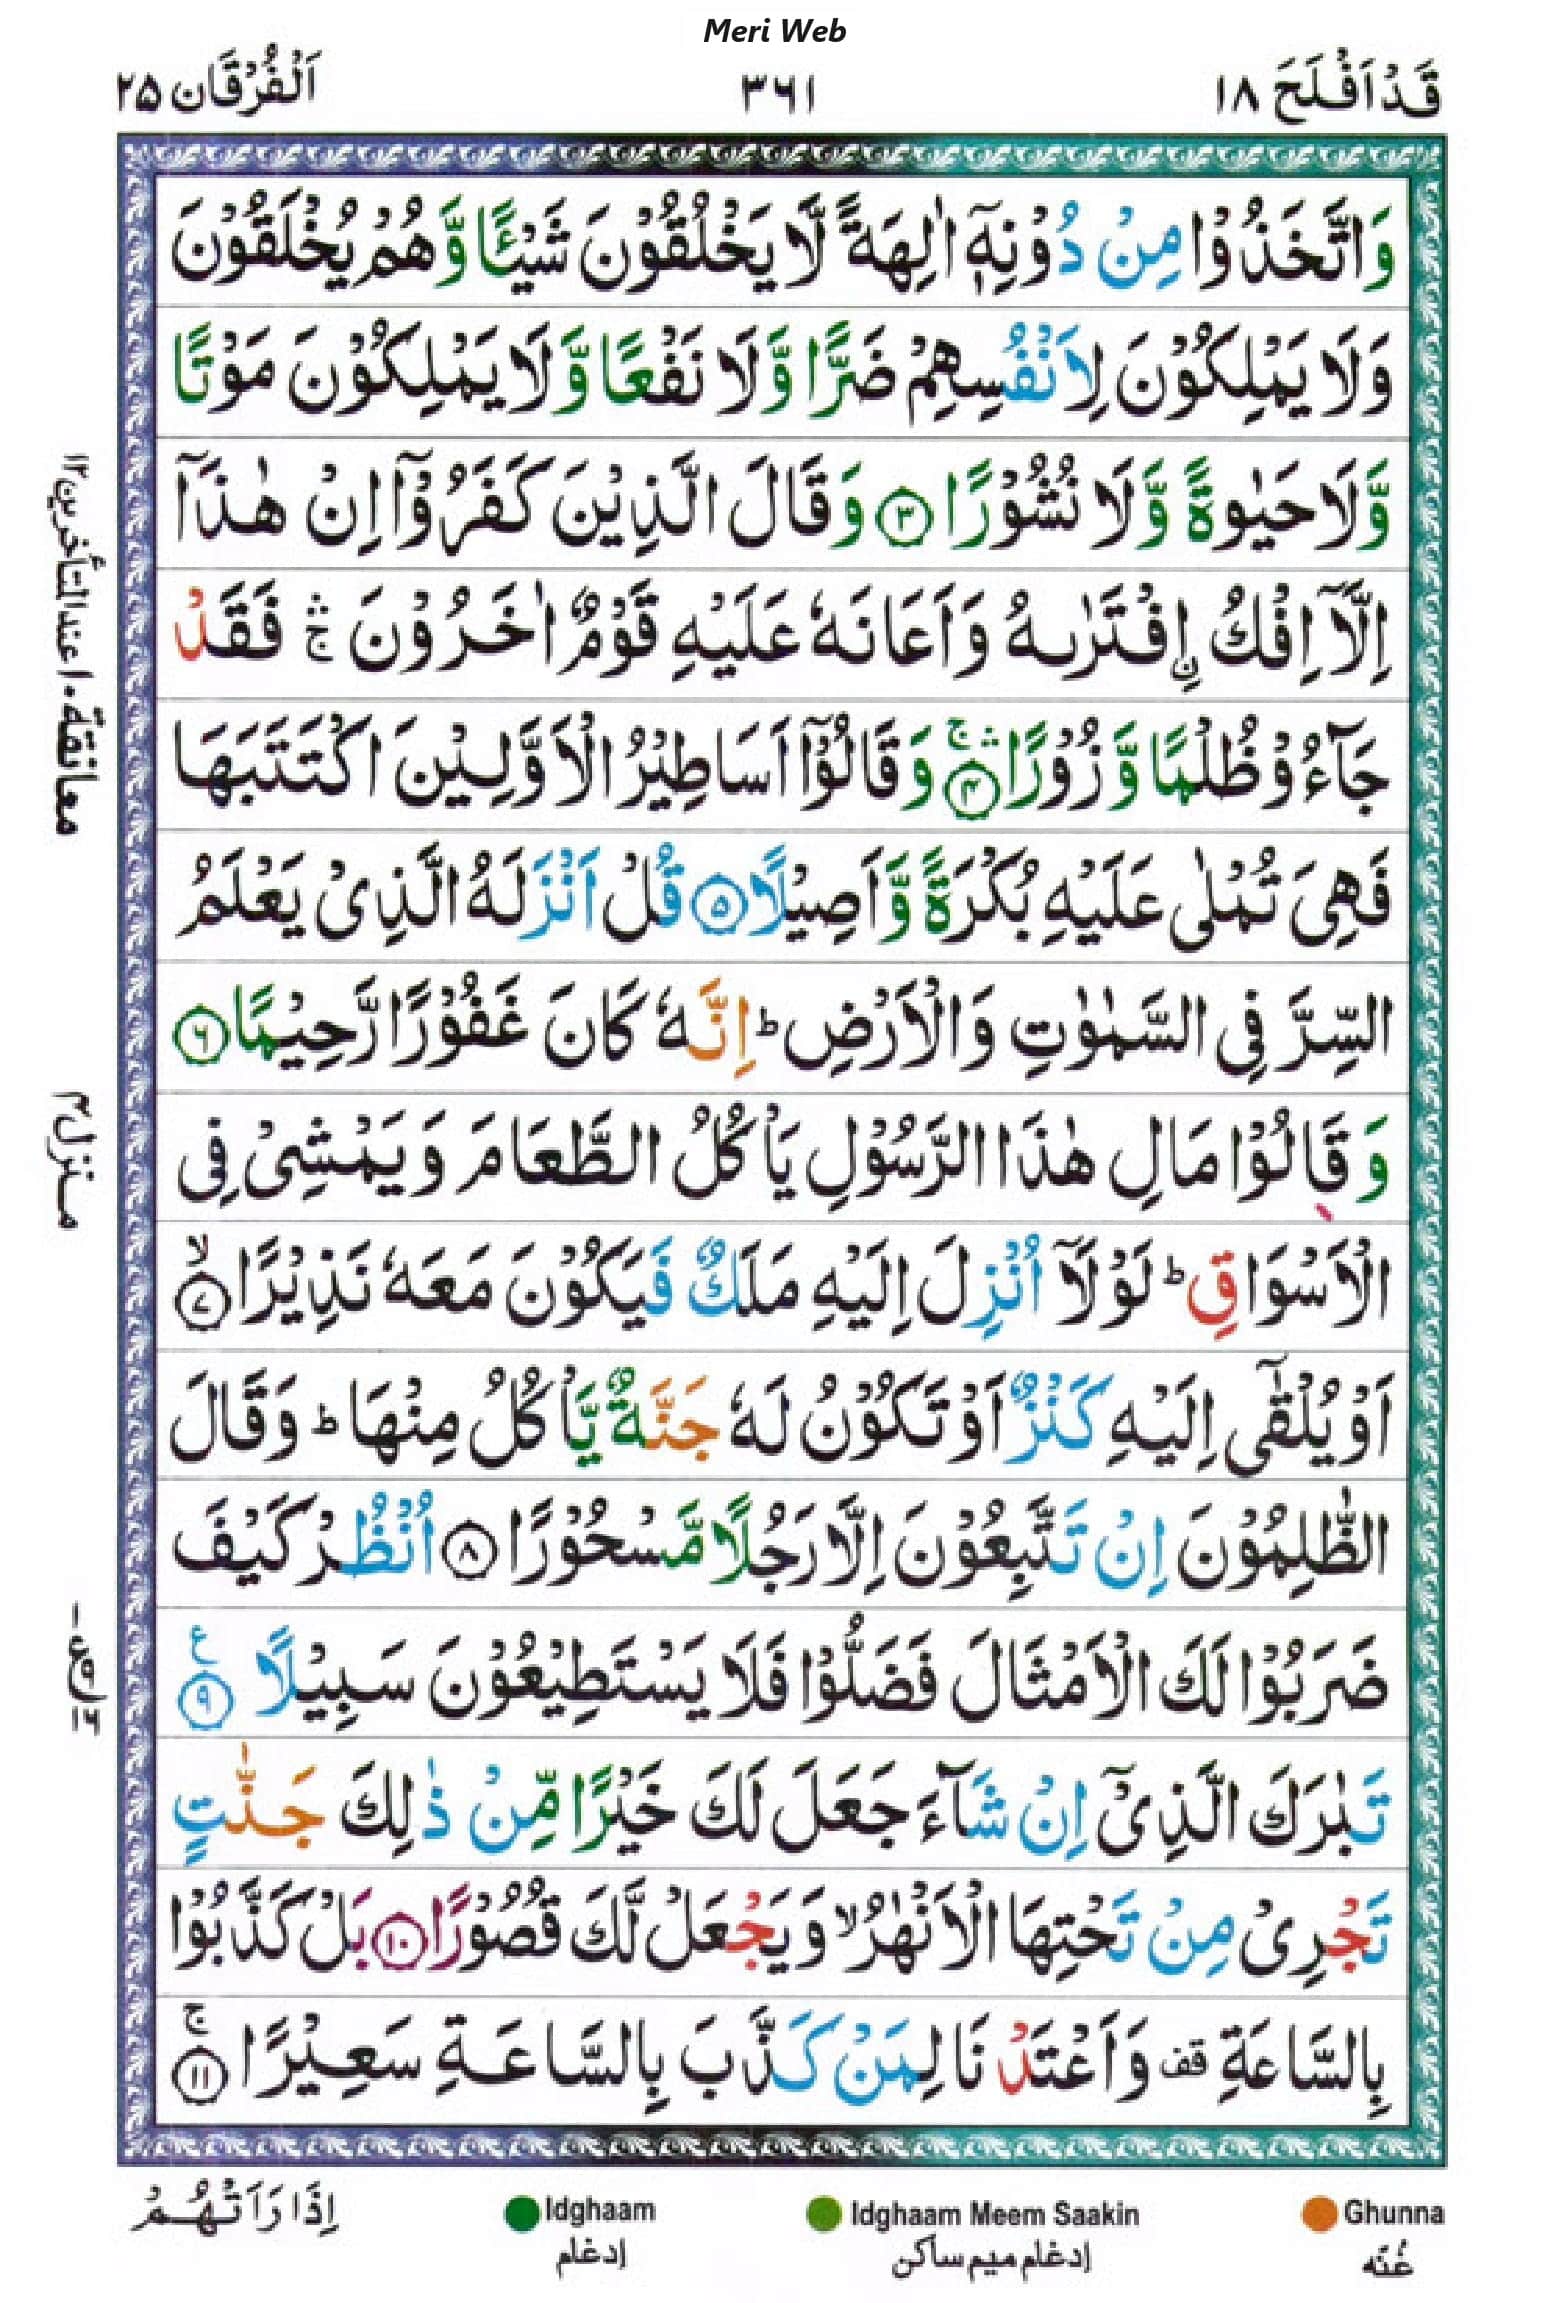 Meri Web
قَدْ اَفْلَحَ ١٨
٣٦١
اَلْفُرْقَان ٢٥
وَاتَّخَذُوْا مِنْ دُوْنِهٖۤ اٰلِهَةً لَّا يَخْلُقُوْنَ شَيْـًٔا وَّهُمْ يُخْلَقُوْنَ
وَلَا يَمْلِكُوْنَ لِاَنْفُسِهِمْ ضَرًّا وَّلَا نَفْعًا وَّلَا يَمْلِكُوْنَ مَوْتًا
وَّلَا حَيٰوةً وَّلَا نُشُوْرًا ۝٣ وَقَالَ الَّذِيْنَ كَفَرُوْۤا اِنْ هٰذَاۤ
اِلَّاۤ اِفْكُ ۨافْتَرٰىهُ وَاَعَانَهٗ عَلَيْهِ قَوْمٌ اٰخَرُوْنَ ۛۚ فَقَدْ
جَآءُوْ ظُلْمًا وَّزُوْرًا ۛۚ ۝٤ وَقَالُوْۤا اَسَاطِيْرُ الْاَوَّلِيْنَ اكْتَتَبَهَا
فَهِيَ تُمْلٰى عَلَيْهِ بُكْرَةً وَّاَصِيْلًا ۝٥ قُلْ اَنْزَلَهُ الَّذِيْ يَعْلَمُ
السِّرَّ فِي السَّمٰوٰتِ وَالْاَرْضِ ؕ اِنَّهٗ كَانَ غَفُوْرًا رَّحِيْمًا ۝٦
وَقَالُوْا مَالِ هٰذَا الرَّسُوْلِ يَاْكُلُ الطَّعَامَ وَيَمْشِيْ فِي
الْاَسْوَاقِ ؕ لَوْلَاۤ اُنْزِلَ اِلَيْهِ مَلَكٌ فَيَكُوْنَ مَعَهٗ نَذِيْرًا ۙ ۝٧
اَوْ يُلْقٰۤى اِلَيْهِ كَنْزٌ اَوْ تَكُوْنُ لَهٗ جَنَّةٌ يَّاْكُلُ مِنْهَا ؕ وَقَالَ
الظّٰلِمُوْنَ اِنْ تَتَّبِعُوْنَ اِلَّا رَجُلًا مَّسْحُوْرًا ۝٨ اُنْظُرْ كَيْفَ
ضَرَبُوْا لَكَ الْاَمْثَالَ فَضَلُّوْا فَلَا يَسْتَطِيْعُوْنَ سَبِيْلًا ۝٩ ع
تَبٰرَكَ الَّذِيْۤ اِنْ شَآءَ جَعَلَ لَكَ خَيْرًا مِّنْ ذٰلِكَ جَنّٰتٍ
تَجْرِيْ مِنْ تَحْتِهَا الْاَنْهٰرُ ۙ وَيَجْعَلْ لَّكَ قُصُوْرًا ۝١٠ بَلْ كَذَّبُوْا
بِالسَّاعَةِ قف وَاَعْتَدْنَا لِمَنْ كَذَّبَ بِالسَّاعَةِ سَعِيْرًا ۚ ۝١١
معانقة ١٠ عند المتأخرين ١٢
منزل ٤
اِذَا رَاَتْهُمْ
Idghaam
إدغام
Idghaam Meem Saakin
إدغام ميم ساكن
Ghunna
غُنّه